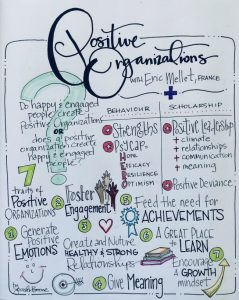 Positive
Organizations
WITH Eric Mellet, FRANCE
Do happy & engaged
people create
Positive Organizations
OR
does a positive
organization create
happy & engaged
people
BEHAVIOUR
Strengths
PSYCAP
HOPE
EFFICACY
RESILIENCE
OPTIMISM
SCHOLARSHIP
Positive Leadership
+ climate
+ relationships
+ communication
+ meaning
Positive Deviance
7
traits of
Positive
ORGANIZATIONS
Generate
Positive
EMOTIONS
Foster
Engagement
Create and Nurture
HEALTHY & STRONG
Relationships
Give Meaning
Feed the need for
ACHIEVEMENTS
A GREAT PLACE
to LEARN
Encourage
A GROWTH
mindset